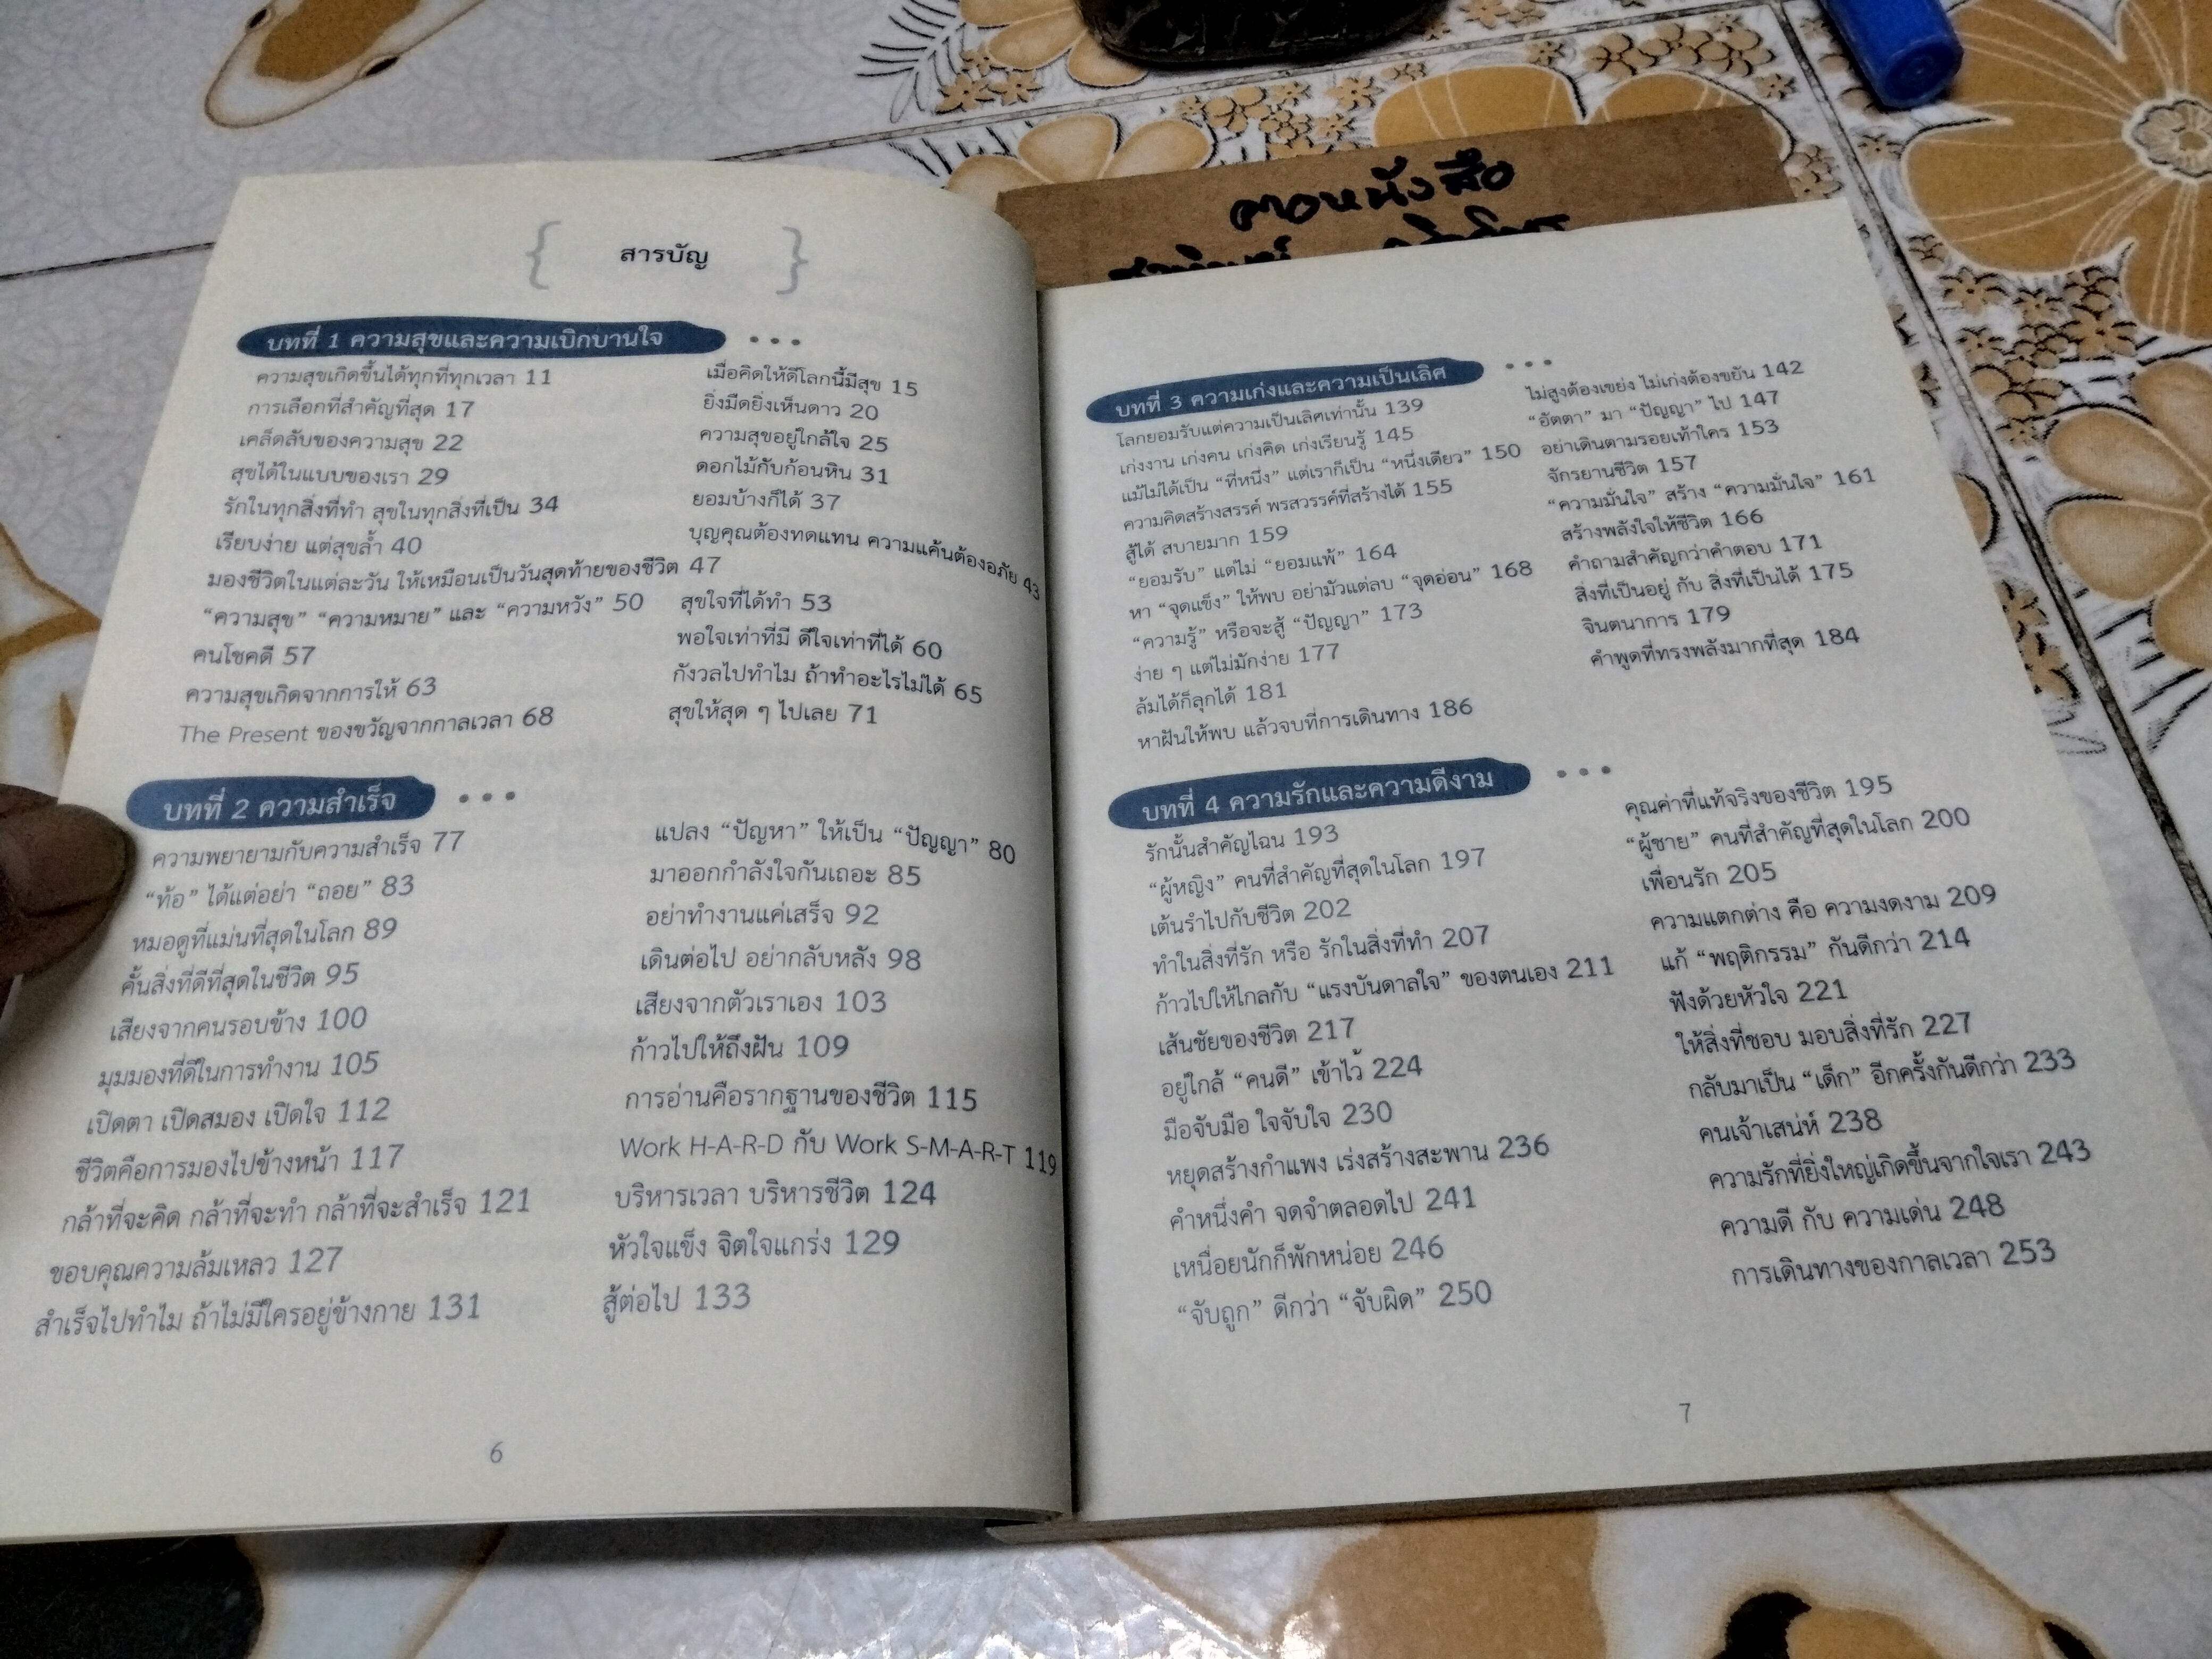 สารบัญ
บทที่ 1 ความสุขและความเบิกบานใจ
ความสุขเกิดขึ้นได้ทุกที่ทุกเวลา 11
เมื่อคิดให้ดีโลกนี้มีสุข 15
การเลือกที่สำคัญที่สุด 17
ยิ่งมืดยิ่งเห็นดาว 20
เคล็ดลับของความสุข 22
ความสุขอยู่ใกล้ใจ 25
สุขได้ในแบบของเรา 29
ดอกไม้กับก้อนหิน 31
รักในทุกสิ่งที่ทำ สุขในทุกสิ่งที่เป็น 34
ยอมบ้างก็ได้ 37
เรียบง่าย แต่สุขล้ำ 40
บุญคุณต้องทดแทน ความแค้นต้องอภัย 43
มองชีวิตในแต่ละวัน ให้เหมือนเป็นวันสุดท้ายของชีวิต 47
“ความสุข” “ความหมาย” และ “ความหวัง” 50
สุขใจที่ได้ทำ 53
คนโชคดี 57
พอใจเท่าที่มี ดีใจเท่าที่ได้ 60
ความสุขเกิดจากการให้ 63
กังวลไปทำไม ถ้าทำอะไรไม่ได้ 65
The Present ของขวัญจากกาลเวลา 68
สุขให้สุด ๆ ไปเลย 71
บทที่ 2 ความสำเร็จ
ความพยายามกับความสำเร็จ 77
แปลง “ปัญหา” ให้เป็น “ปัญญา” 80
“ท้อ” ได้แต่อย่า “ถอย” 83
มาออกกำลังใจกันเถอะ 85
หมอดูที่แม่นที่สุดในโลก 89
อย่าทำงานแค่เสร็จ 92
คั้นสิ่งที่ดีที่สุดในชีวิต 95
เดินต่อไป อย่ากลับหลัง 98
เสียงจากคนรอบข้าง 100
เสียงจากตัวเราเอง 103
มุมมองที่ดีในการทำงาน 105
ก้าวไปให้ถึงฝัน 109
เปิดตา เปิดสมอง เปิดใจ 112
การอ่านคือรากฐานของชีวิต 115
ชีวิตคือการมองไปข้างหน้า 117
Work H-A-R-D กับ Work S-M-A-R-T 119
กล้าที่จะคิด กล้าที่จะทำ กล้าที่จะสำเร็จ 121
บริหารเวลา บริหารชีวิต 124
ขอบคุณความล้มเหลว 127
หัวใจแข็ง จิตใจแกร่ง 129
สำเร็จไปทำไม ถ้าไม่มีใครอยู่ข้างกาย 131
สู้ต่อไป 133
6
ตอหนังสือ
บทที่ 3 ความเก่งและความเป็นเลิศ
โลกยอมรับแต่ความเป็นเลิศเท่านั้น 139
ไม่สูงต้องเขย่ง ไม่เก่งต้องขยัน 142
เก่งงาน เก่งคน เก่งคิด เก่งเรียนรู้ 145
“อัตตา” มา “ปัญญา” ไป 147
แม้ไม่ได้เป็น “ที่หนึ่ง” แต่เราก็เป็น “หนึ่งเดียว” 150
อย่าเดินตามรอยเท้าใคร 153
ความคิดสร้างสรรค์ พรสวรรค์ที่สร้างได้ 155
จักรยานชีวิต 157
สู้ได้ สบายมาก 159
“ความมั่นใจ” สร้าง “ความมั่นใจ” 161
“ยอมรับ” แต่ไม่ “ยอมแพ้” 164
สร้างพลังใจให้ชีวิต 166
หา “จุดแข็ง” ให้พบ อย่ามัวแต่ลบ “จุดอ่อน” 168
คำถามสำคัญกว่าคำตอบ 171
“ความรู้” หรือจะสู้ “ปัญญา” 173
สิ่งที่เป็นอยู่ กับ สิ่งที่เป็นได้ 175
ง่าย ๆ แต่ไม่มักง่าย 177
จินตนาการ 179
ล้มได้ก็ลุกได้ 181
คำพูดที่ทรงพลังมากที่สุด 184
หาฝันให้พบ แล้วจบที่การเดินทาง 186
บทที่ 4 ความรักและความดีงาม
รักนั้นสำคัญไฉน 193
คุณค่าที่แท้จริงของชีวิต 195
“ผู้หญิง” คนที่สำคัญที่สุดในโลก 197
“ผู้ชาย” คนที่สำคัญที่สุดในโลก 200
เต้นรำไปกับชีวิต 202
เพื่อนรัก 205
ทำในสิ่งที่รัก หรือ รักในสิ่งที่ทำ 207
ความแตกต่าง คือ ความงดงาม 209
ก้าวไปให้ไกลกับ “แรงบันดาลใจ” ของตนเอง 211
แก้ “พฤติกรรม” กันดีกว่า 214
เส้นชัยของชีวิต 217
ฟังด้วยหัวใจ 221
อยู่ใกล้ “คนดี” เข้าไว้ 224
ให้สิ่งที่ชอบ มอบสิ่งที่รัก 227
มือจับมือ ใจจับใจ 230
กลับมาเป็น “เด็ก” อีกครั้งกันดีกว่า 233
หยุดสร้างกำแพง เร่งสร้างสะพาน 236
คนเจ้าเสน่ห์ 238
คำหนึ่งคำ จดจำตลอดไป 241
ความรักที่ยิ่งใหญ่เกิดขึ้นจากใจเรา 243
เหนื่อยนักก็พักหน่อย 246
ความดี กับ ความเด่น 248
“จับถูก” ดีกว่า “จับผิด” 250
การเดินทางของกาลเวลา 253
7